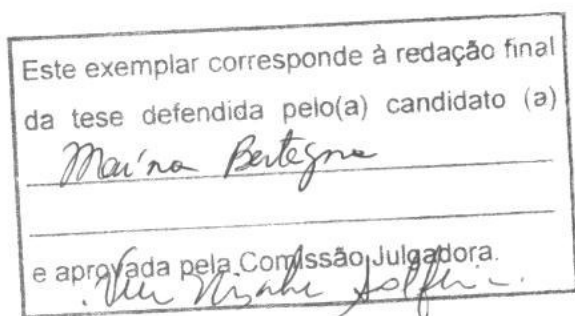 Este exemplar corresponde à redação final
da tese defendida pelo(a) candidato (a)
Bertagna
e aprovada pela Comissão Julgadora.